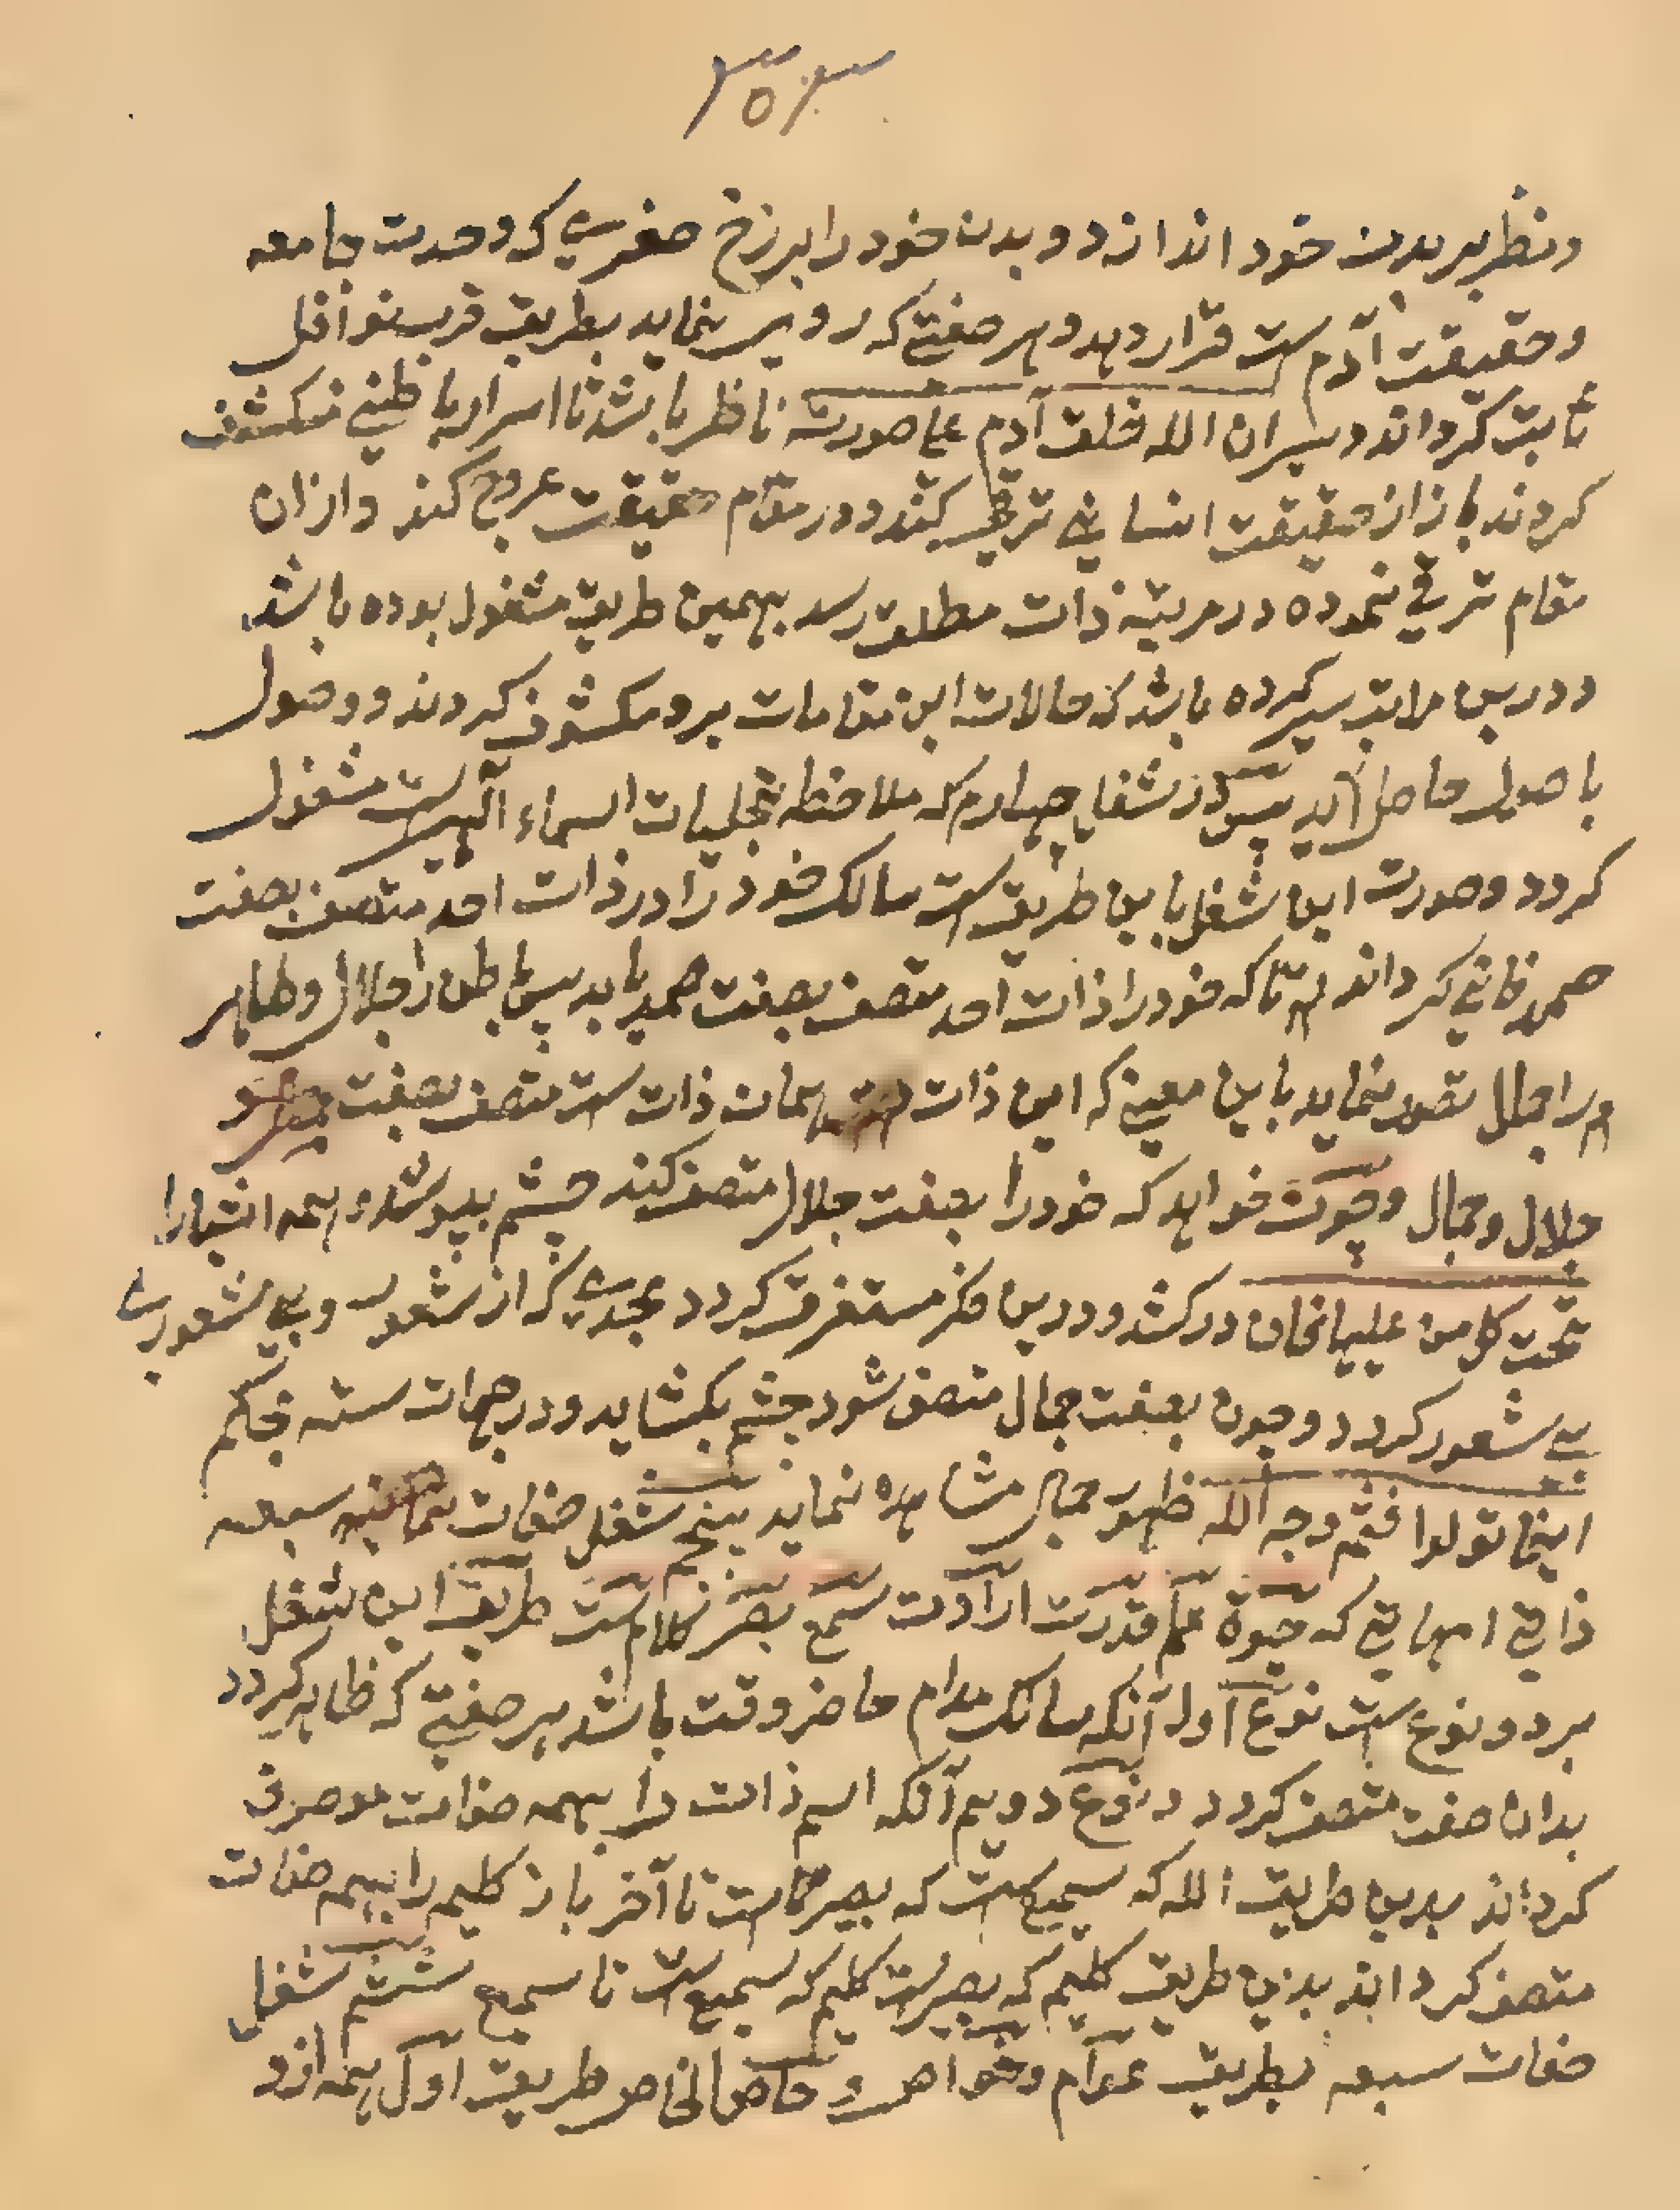 ۳۵۳
ونظر بر بدن خود اندازد و بدن خود را برزخ صغری که وحدت جامعه
وحقیقت آدم ست قرار دهد و هر صفتے که رو نماید بطریق قرب نوافل
ثابت گرداند و بران الله خلق آدم علی صورته ناظر باشد تا اسرار باطنے منکشف
گردند باز از حقیقت انسانے ترقی کند و در مقام حقیقت عروج کند و از ان
مقام ترقی نموده در مرتبه ذات مطلق رسد بهمین طریق مشغول بوده باشد
و درین مراتب سیر کرده باشد که حالات این مقامات برو مکشوف گردند و وصول
باصول حاصل آید شغل چهارم که ملاحظه تجلیات اسماء الهی ست مشغول
گردد وصورت این شغل باین طریق ست سالک خود را در ذات احد متصف بصفت
صمد فانی گرداند تا که خود را ذات احد متصف بصفت صمد یابد پس باطن را جلال وظاهر
را جمال تصور نماید باین معنے که این ذات همان ذات ست متصف بصفت
جلال وجمال وچون خواهد که خود را بصفت جلال متصف کند چشم بپوشد و همه اشیا را
تحت کل من علیها فان در کشد و درین فکر مستغرق گردد بحدی که از شعور و بے شعوری
بے شعور گردد و چون بصفت جمال متصف شود چشم بکشاید و در جهات سته بحکم
اینما تولوا فثم وجه الله ظهور جمال مشاهده نماید پنجم شغل صفات سبعه
ذاتی امهاتی که حیوة علم قدرت ارادت سمع بصر کلام ست طریق این شغل
بر دو نوع ست نوع اول آنکه سالک مدام حاضر وقت باشد هر صفتے که ظاهر گردد
بدان صفت متصف گردد و نوع دویم آنکه اسم ذات را بهمه صفات موصوف
گرداند بدین طریق الله که سمیع ست که بصیر ست تا آخر باز کلیم را بهمه صفات
متصف گرداند بدین طریق کلیم که بصیر ست کلیم که سمیع ست تا سمیع ششم شغل
صفات سبعه بطریق عوام وخواص و خاص الخاص طریق اول همه ازو